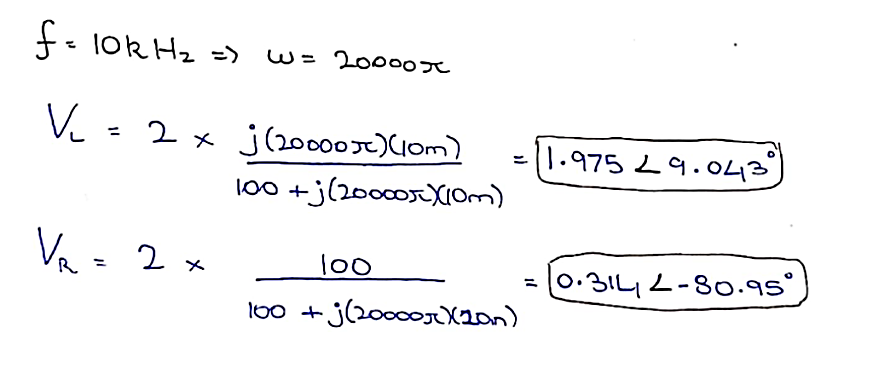 f = 10kHz => ω = 20000π
V_L = 2 × j(20000π)(10m) / 100 + j(20000π)(10m) = 1.975 ∠ 9.043°
V_R = 2 × 100 / 100 + j(20000π)(10m) = 0.314 ∠ -80.95°